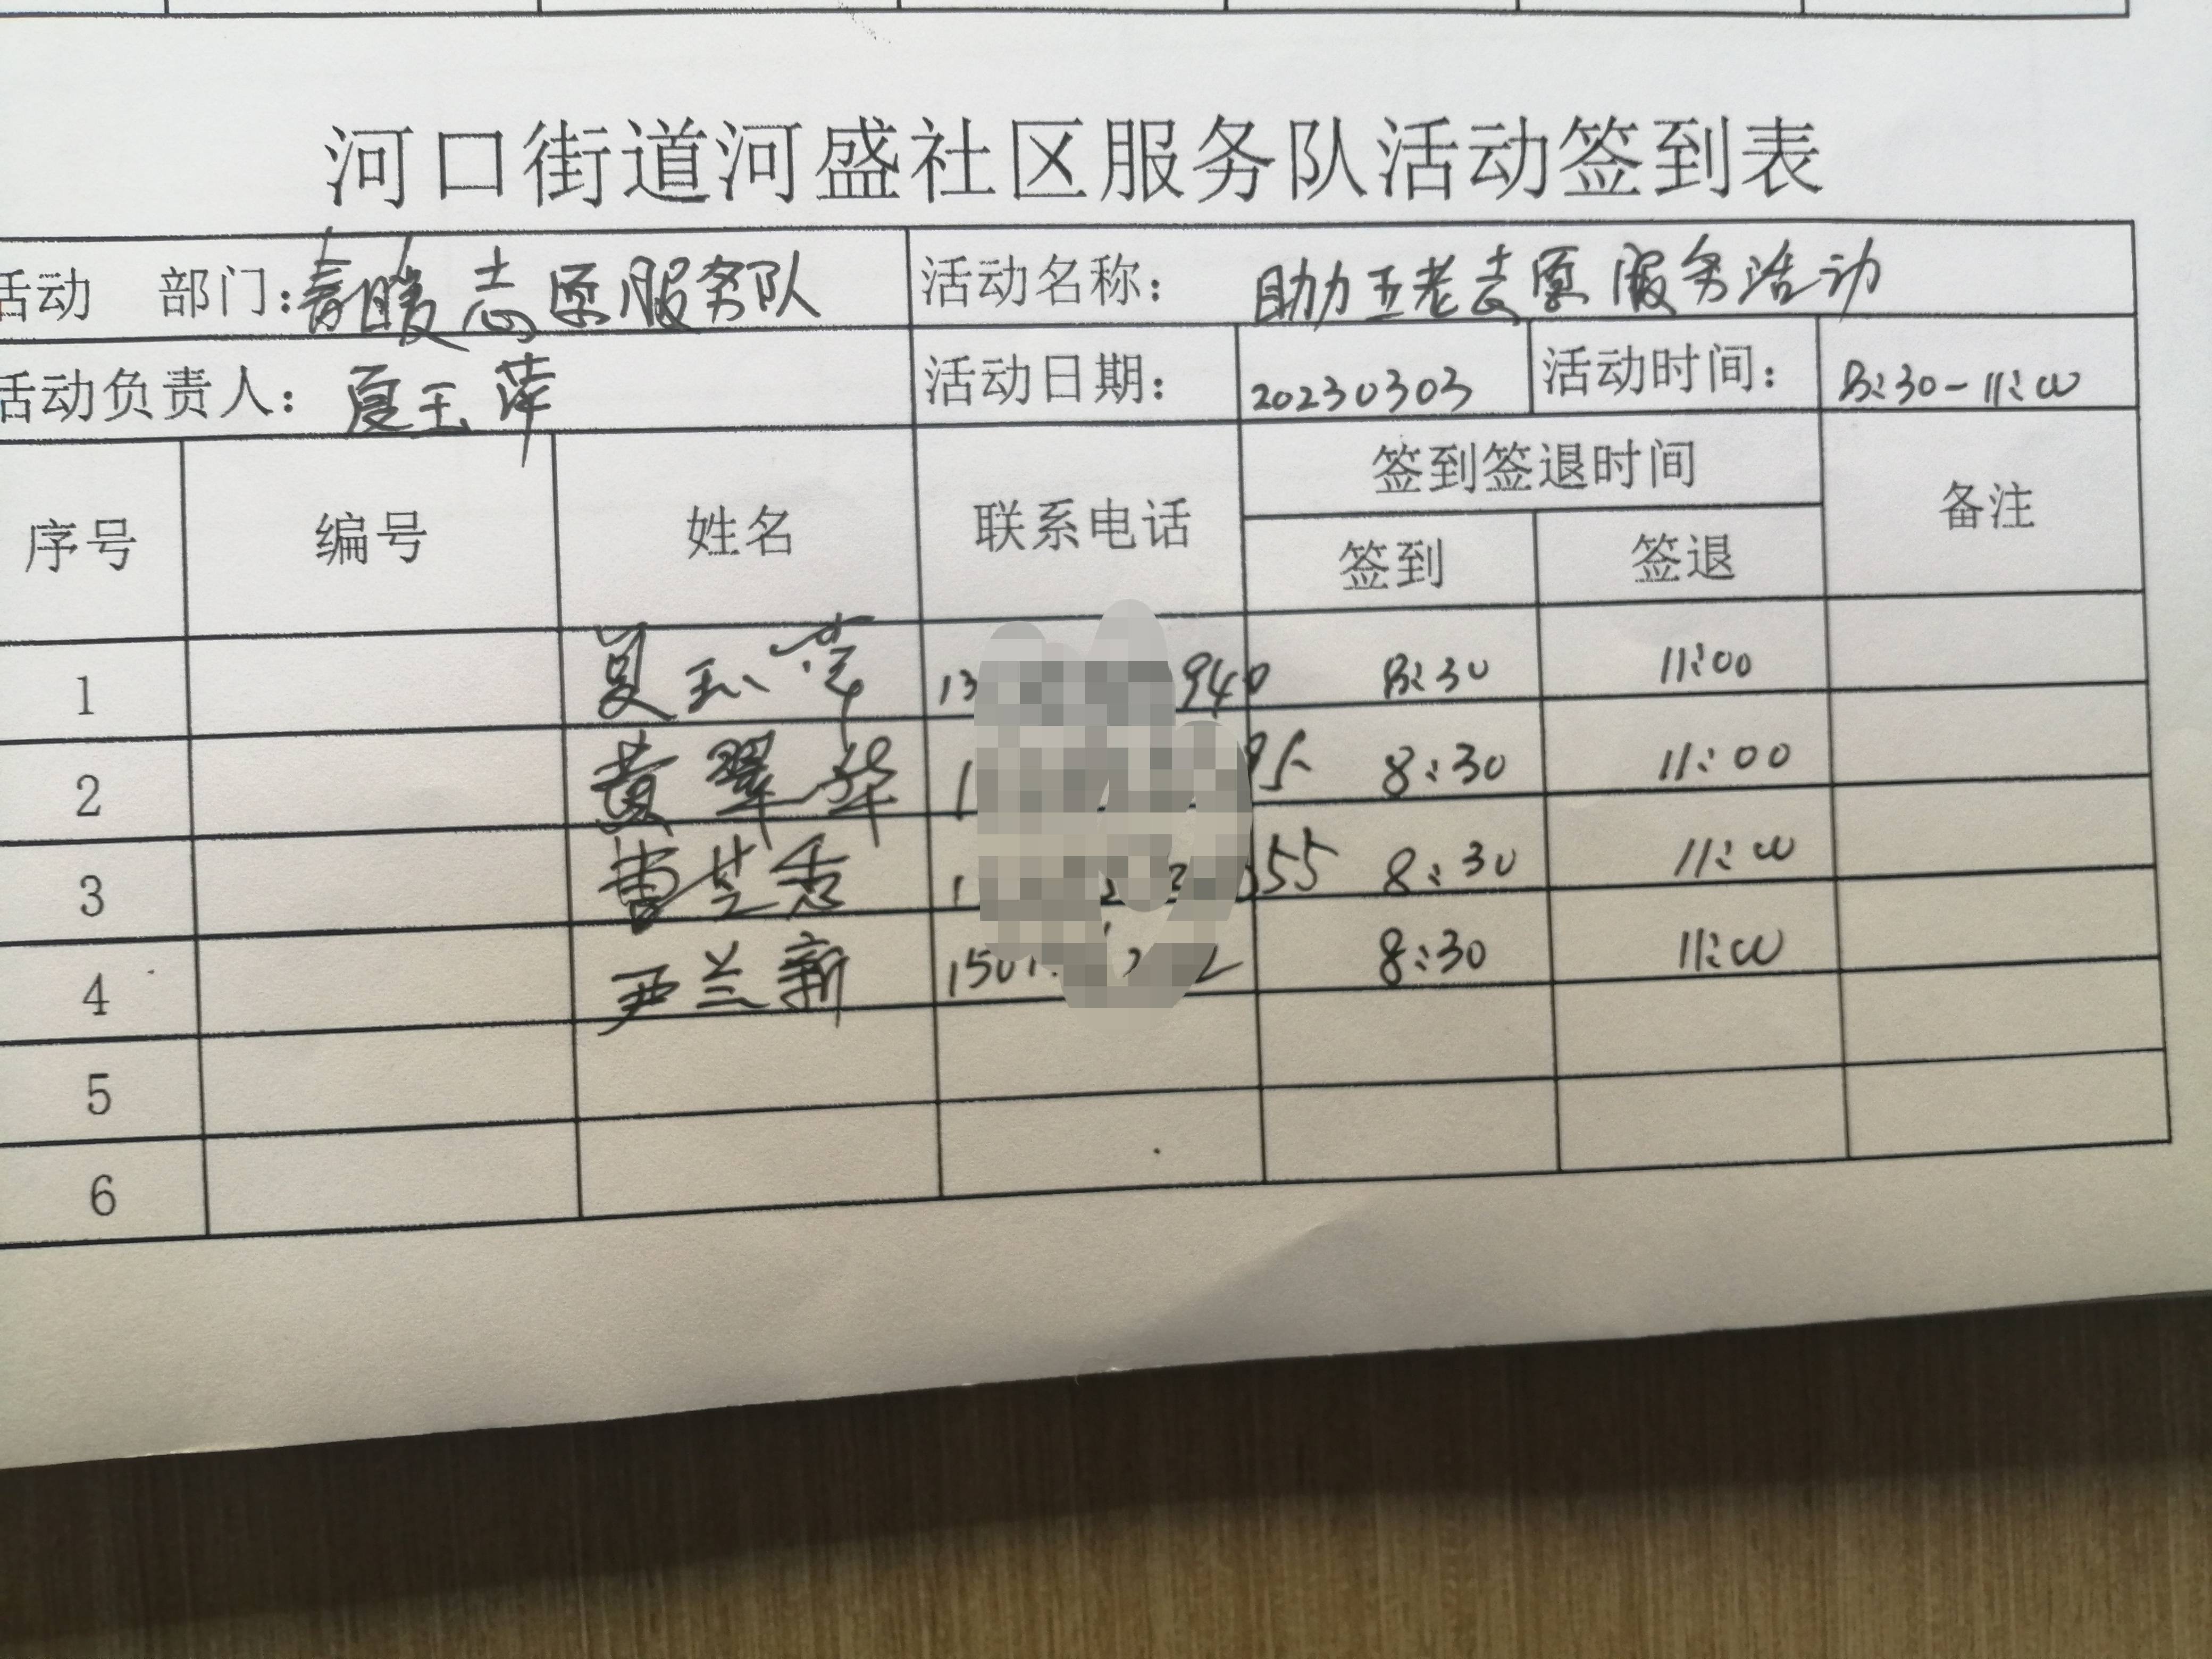 河口街道河盛社区服务队活动签到表
活动 部门：春暖志愿服务队 活动名称： 助力五老志愿服务活动
活动负责人：夏玉萍 活动日期： 20230303 活动时间： 8:30-11:00
序号 编号 姓名 联系电话 签到签退时间 备注
签到 签退
1 夏玉萍 13 940 8:30 11:00
2 黄翠华 1 95 8:30 11:00
3 曹芝秀 1 55 8:30 11:00
4 尹兰新 150 8:30 11:00
5
6